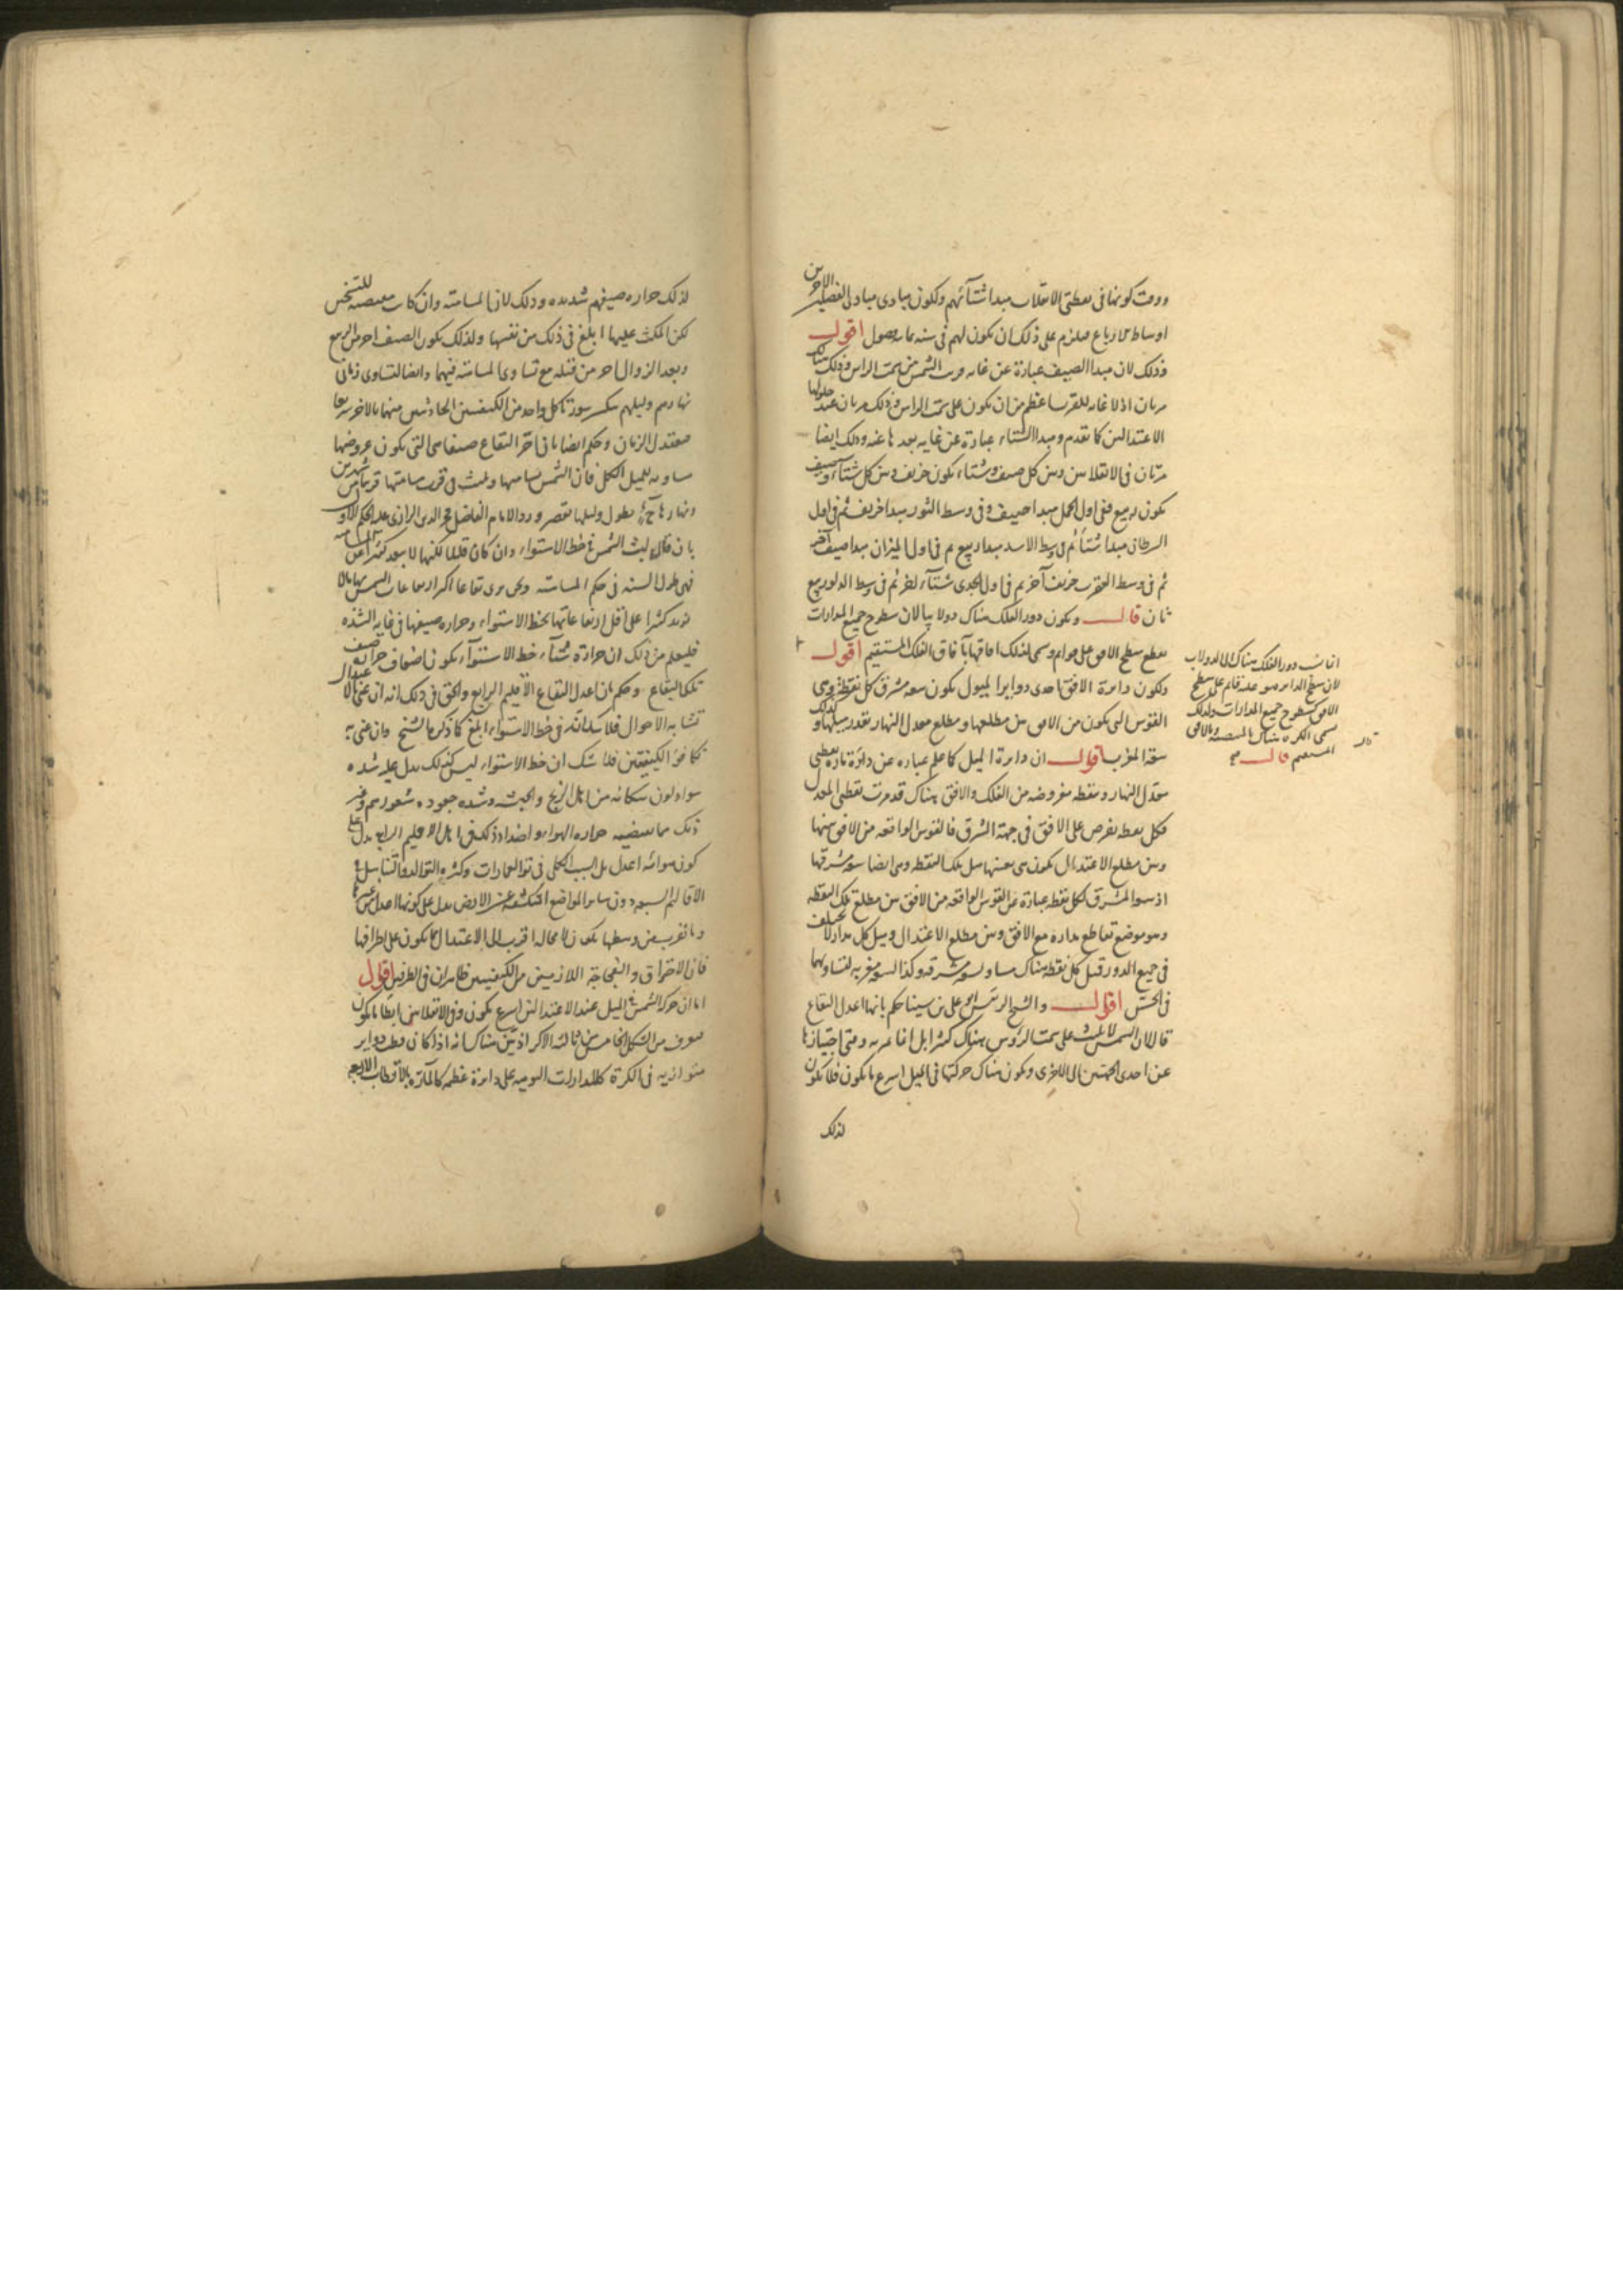 ووقت كونها فى نقطتى الانقلاب مبدا شتائهم ولكون مبادى مبادى الفصلين الاخرين
اوساط الارباع فيلزم على ذلك ان يكون لهم فى سنة ثمانية فصول اقول
وذلك لان مبدا الصيف عبارة عن غاية قرب الشمس من سمت الراس وذلك هناك
مرتان اذ لا غاية للقرب اعظم من ان يكون على سمت الراس وذلك مرتان عند حلولها
الاعتدالين كما تقدم ومبدا الشتاء عبارة عن غاية بعدها عنه وذلك ايضا
مرتان فى الانقلابين وبين كل صيف وشتاء يكون خريف وبين كل شتاء وصيف
يكون ربيع ففى اول الحمل مبدا صيف وفى وسط الثور مبدا خريف ثم فى اول
السرطان مبدا شتاء ثم فى وسط الاسد مبدا ربيع ثم فى اول الميزان مبدا صيف آخر
ثم فى وسط العقرب خريف آخر ثم فى اول الجدى شتاء آخر ثم فى وسط الدلو ربيع
ثان قال ويكون دور الفلك هناك دولابيا لان سطوح جميع المدارات
يقطع سطح الافق على قوائم وسمى لذلك افاقها آفاق الفلك المستقيم اقول
ولكون دايرة الافق احدى دواير الميول يكون سعة مشرق كل نقطة وهى
القوس التى يكون من الافق بين مطلعها ومطلع معدل النهار بقدر ميلها وكذلك
سعة المغرب اقول ان دايرة الميل كما علم عبارة عن دايرة مارة بقطبى
معدل النهار ونقطة مفروضة من الفلك والافق هناك قد مرت بقطبى المعدل
فكل نقطة يفرض على الافق فى جهة الشرق فالقوس الواقعة من الافق بينها
وبين مطلع الاعتدال يكون هى بعينها ميل تلك النقطة وهى ايضا سعة مشرقها
اذ سعة المشرق لكل نقطة عبارة عن القوس الواقعة من الافق بين مطلع تلك النقطة
وهو موضع تقاطع مداره مع الافق وبين مطلع الاعتدال وميل كل مدار لا يختلف
فى جميع الدور فميل كل نقطة هناك مساو لسعة مشرقه وكذا لسعة مغربه لتساويهما
فى الحس اقول والشيخ الرئيس ابو على بن سينا حكم بانها اعدل البقاع
قال لان الشمس لا تلبث على سمت الرؤس هناك كثيرا بل انما تمر به وقت اجتيازها
عن احدى الجهتين الى الاخرى ويكون هناك حركتها فى الميل اسرع ما يكون فلا يكون
لذلك
انما شبه دور الفلك هناك بالدولاب
لان سطح الدايرة هو عليه قايم على سطح
الافق كسطوح جميع المدارات ولذلك
سمى الكرة هناك المنتصبة والافق
المستقيم قال صح
لذلك حرارة صيفهم شديدة وذلك لان المسامتة وان كانت مقتضية للتسخين
لكن المكث عليها ابلغ فى ذلك من نفسها ولذلك يكون الصيف احر من الربيع
وبعد الزوال احر من قبله مع تساوى المسامتة فيهما وايضا لتساوى زمانى
نهارهم وليلهم تنكسر سورتا كل واحد من الكيفيتين الحادثتين منهما بالاخرى سريعا
فيعتدل الزمان وحكم ايضا بان احر البقاع صيفا هى التى يكون عروضها
مساوية للميل الكلى فان الشمس تسامتها وتلبث فى قرب مسامتتها قريبا من شهرين
ونهارها ح يطول وليلها يقصر ورد الامام الفاضل فخر الدين الرازى عليه الحكم الاول
بان قال لبث الشمس فى خط الاستواء وان كان قليلا لكنها لا يبعد كثيرا عن المسامتة
فهى طول السنة فى حكم المسامتة ونحن نرى بقاعا اكثر ارتفاعات الشمس بها لا
يزيد كثيرا على اقل ارتفاعاتها بخط الاستواء وحرارة صيفها فى غاية الشدة
فليعلم من ذلك ان حرارة شتاء خط الاستواء يكون اضعاف حرارة صيف
تلك البقاع وحكم بان اعدل البقاع الاقليم الرابع والحق فى ذلك انه ان عنى بالاعتدال
تشابه الاحوال فلا شك انه فى خط الاستواء ابلغ كما ذكره الشيخ وان عنى به
تكافؤ الكيفيتين فلا شك ان خط الاستواء ليس كذلك يدل عليه شدة
سواد لون سكانه من اهل الزنج والحبشة وشدة جعودة شعورهم وغير
ذلك مما يقتضيه حرارة الهواء واضداد ذلك فى اهل الاقليم الرابع يدل على
كون هوائه اعدل بل السبب الكلى فى توفر العمارات وكثرة التوالد والتناسل فى
الاقاليم السبعة دون ساير المواضع المنكشفة من الارض يدل على كونها اعدل من غيرها
وما يقرب من وسطها يكون لا محالة اقرب الى الاعتدال مما يكون على اطرافها
فان الاحتراق والفجاجة اللازمين من الكيفيتين ظاهران فى الطرفين اقول
اما ان حركة الشمس فى الميل عند الاعتدالين اسرع يكون وفى الانقلابين ابطا ما يكون
فيعرف من الشكل الخامس من ثالثة الاكر اذ تبين هناك انه اذا كان قطب دواير
متوازية فى الكرة كالمدارات اليومية على دايرة عظيمة كالمارة بالاقطاب الاربعة